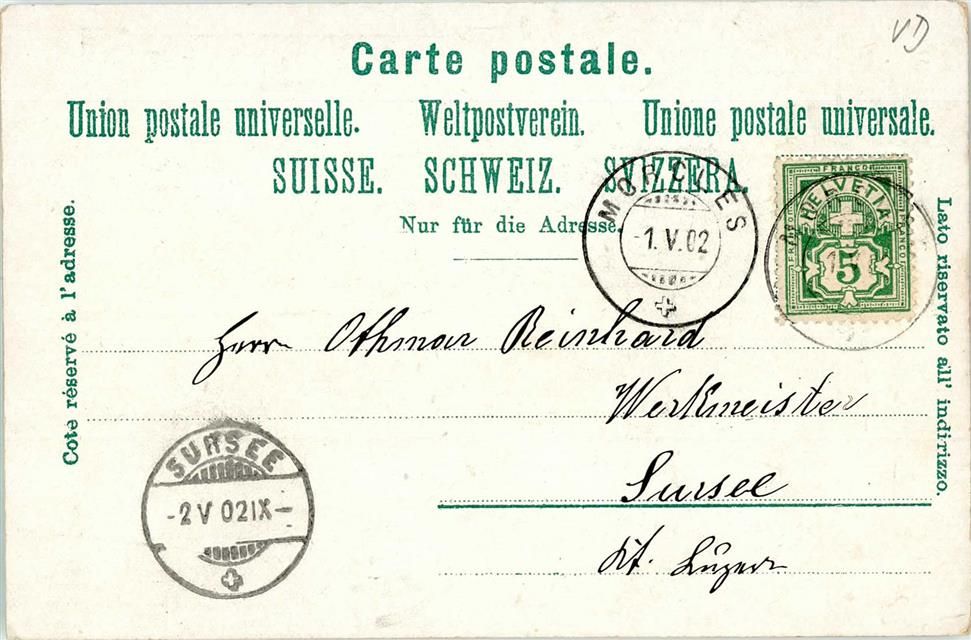 VD
Carte postale.
Union postale universelle. Weltpostverein. Unione postale universale.
SUISSE. SCHWEIZ. SVIZZERA.
Nur für die Adresse.
Côté réservé à l'adresse.
Lato riservato all' indirizzo.
MORCLES
-1.V.02
FRANCO
HELVETIA
FRANCO
FRANCO
5
Herrn Othmar Reinhard
Werkmeister
Sursee
Kt. Luzern
SURSEE
-2 V 02 IX-